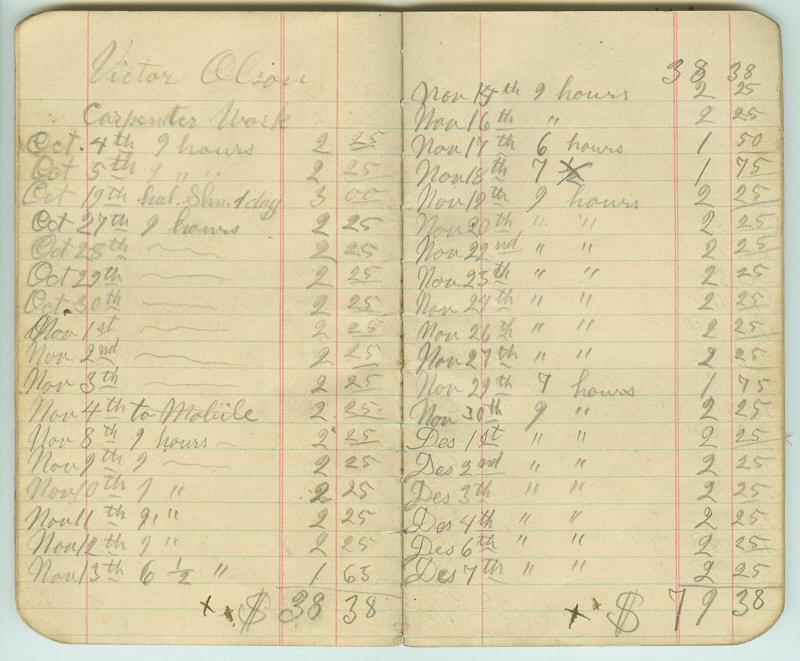 Victor Olson
Carpenter Work
Oct. 4th 9 hours 2 25
Oct 5th 9 " " 2 25
Oct 19th hal. Shu. 1 day 3 00
Oct 27th 9 hours 2 25
Oct 28th 2 25
Oct 29th 2 25
Oct 30th 2 25
Nov 1st 2 25
Nov 2nd 2 25
Nov 3th 2 25
Nov 4th to Mobile 2 25
Nov 8th 9 hours 2 25
Nov 9th 9 2 25
Nov 10th 9 " 2 25
Nov 11th 9 " 2 25
Nov 12th 9 " 2 25
Nov 13th 6 1/2 " 1 63
x $ 38 38
38 38
Nov 15th 9 hours 2 25
Nov 16th " 2 25
Nov 17th 6 hours 1 50
Nov 18th 7 1 75
Nov 19th 9 hours 2 25
Nov 20th " " 2 25
Nov 22nd " " 2 25
Nov 23th " " 2 25
Nov 24th " " 2 25
Nov 26th " " 2 25
Nov 27th " " 2 25
Nov 29th 7 hours 1 75
Nov 30th 9 " 2 25
Des 1st " " 2 25
Des 2nd " " 2 25
Des 3th " " 2 25
Des 4th " " 2 25
Des 6th " " 2 25
Des 7th " " 2 25
x $ 79 38